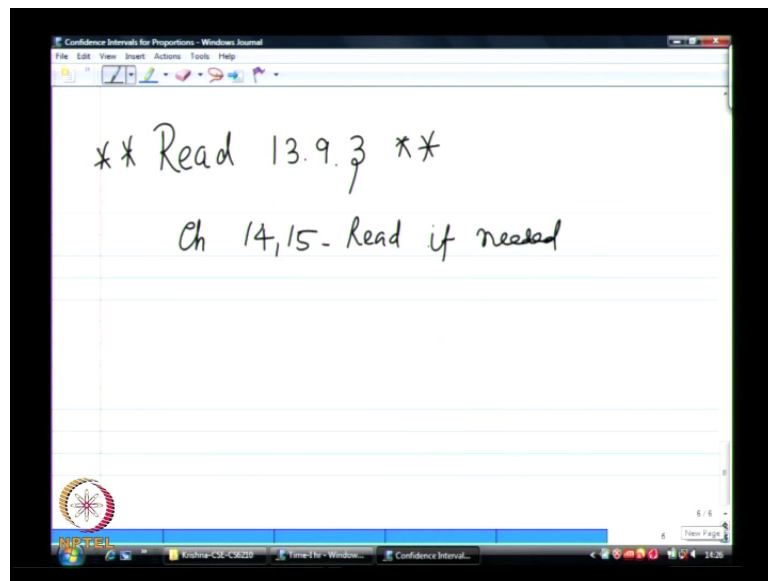 Confidence Intervals for Proportions - Windows Journal
File Edit View Insert Actions Tools Help
** Read 13.9.3 **
Ch 14,15- Read if needed
6 / 6
6
New Page
NPTEL
Krishna-CSE-CS6210
Time-1 hr - Window...
Confidence Interval...
14:26